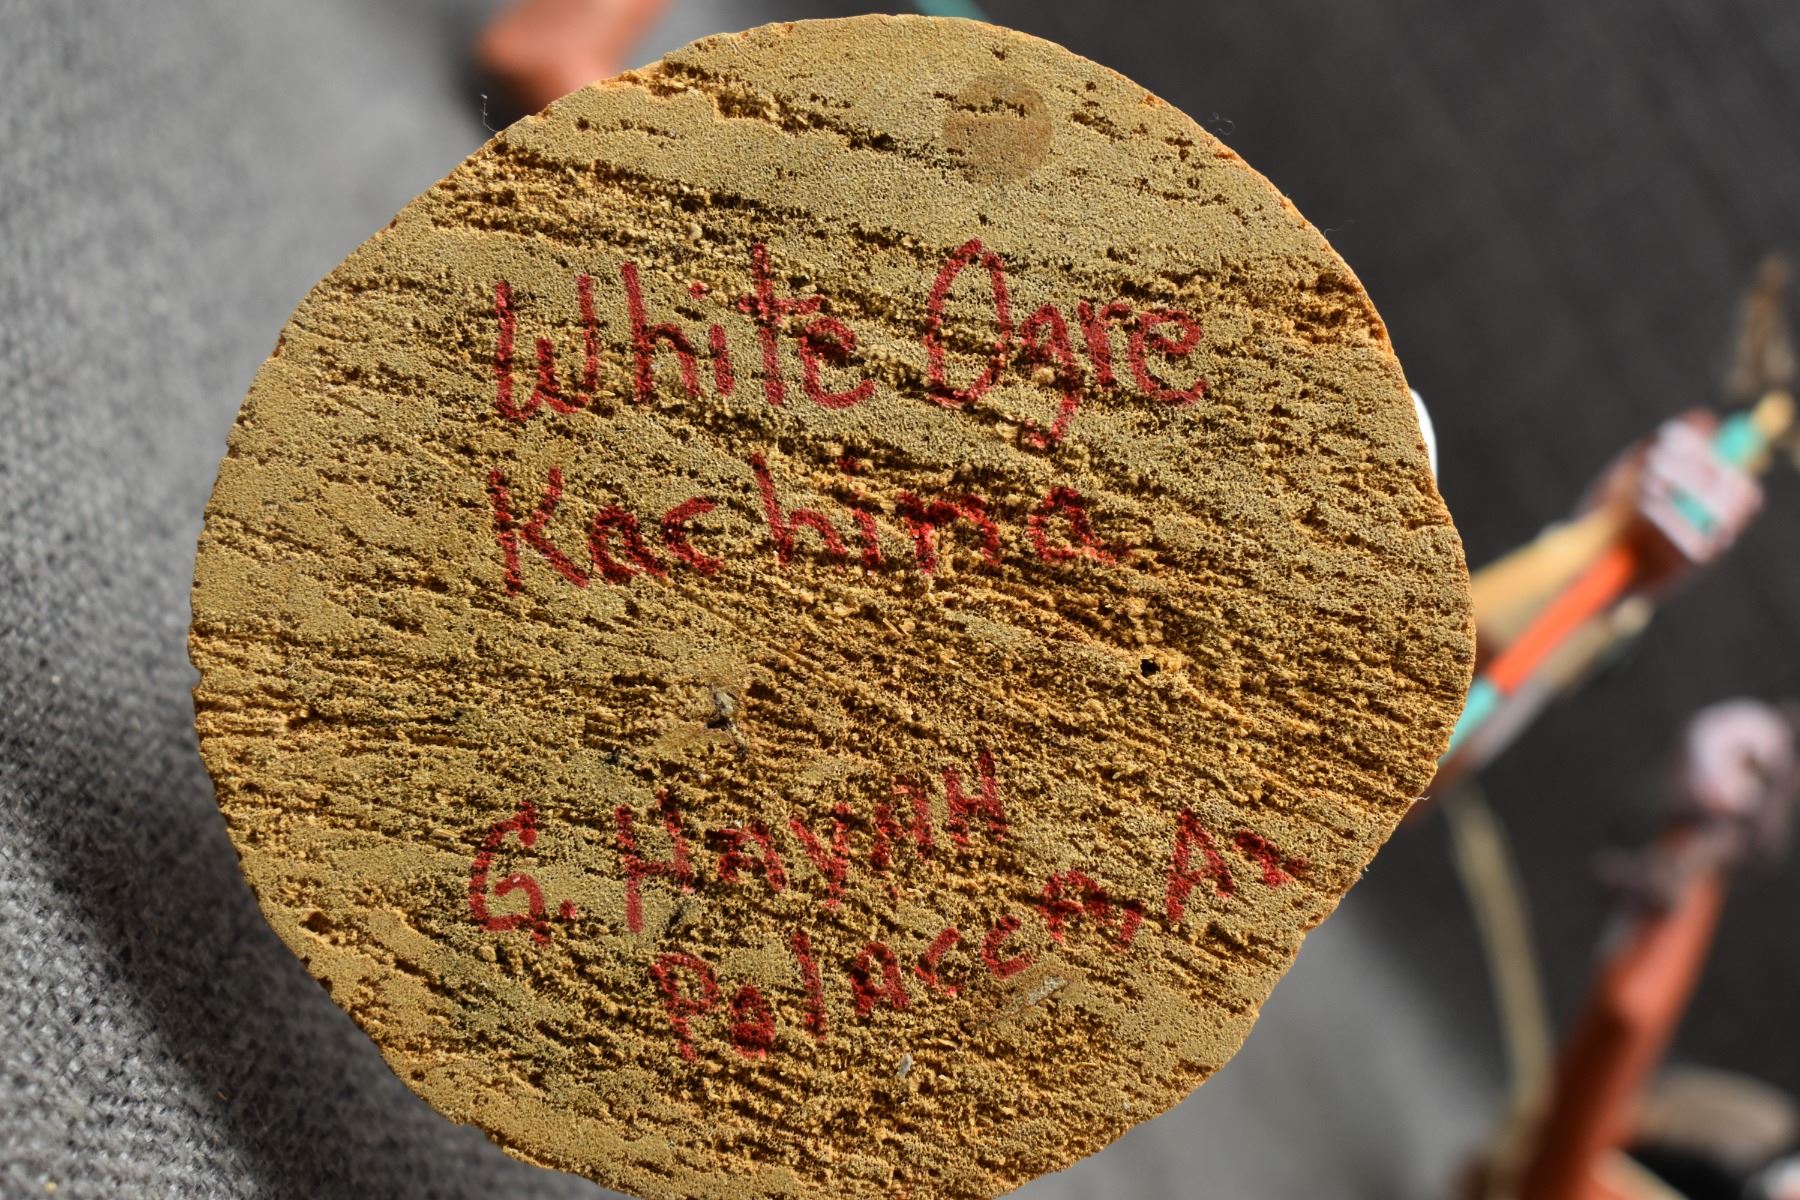 White Ogre
Kachina
G. Hayah
Polacca, Az